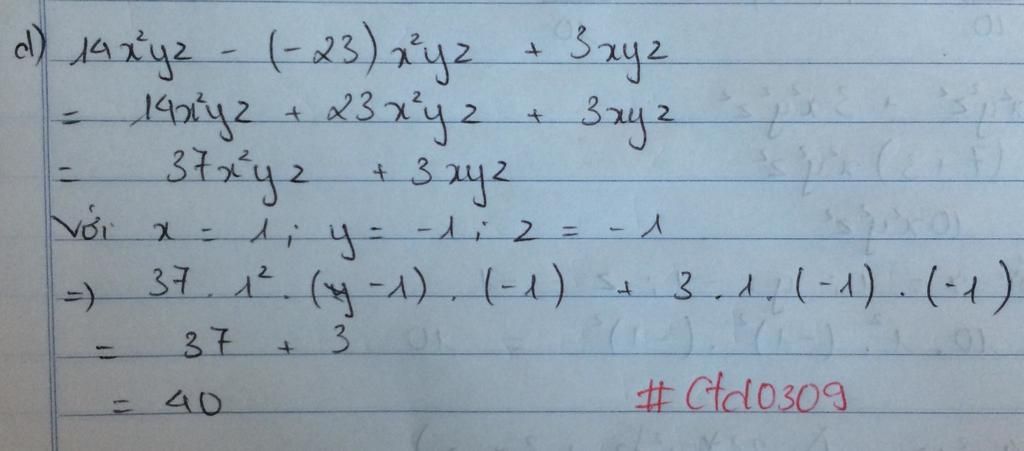 d) 14x²yz - (-23)x²yz + 3xyz
= 14x²yz + 23x²yz + 3xyz
= 37x²yz + 3xyz
Với x = 1; y = -1; z = -1
=) 37 . 1² . (-1) . (-1) + 3 . 1 . (-1) . (-1)
= 37 + 3
= 40
#Ctd0309